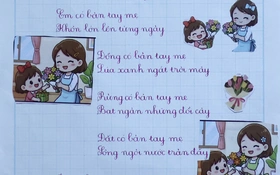 Em có bàn tay mẹ
Khôn lớn lên từng ngày
Đồng có bàn tay mẹ
Lúa xanh ngát trời mây
Ruộng có bàn tay mẹ
Bạt ngàn nhưng đồi cây
Đất có bàn tay mẹ
Sông ngòi nước tràn đầy